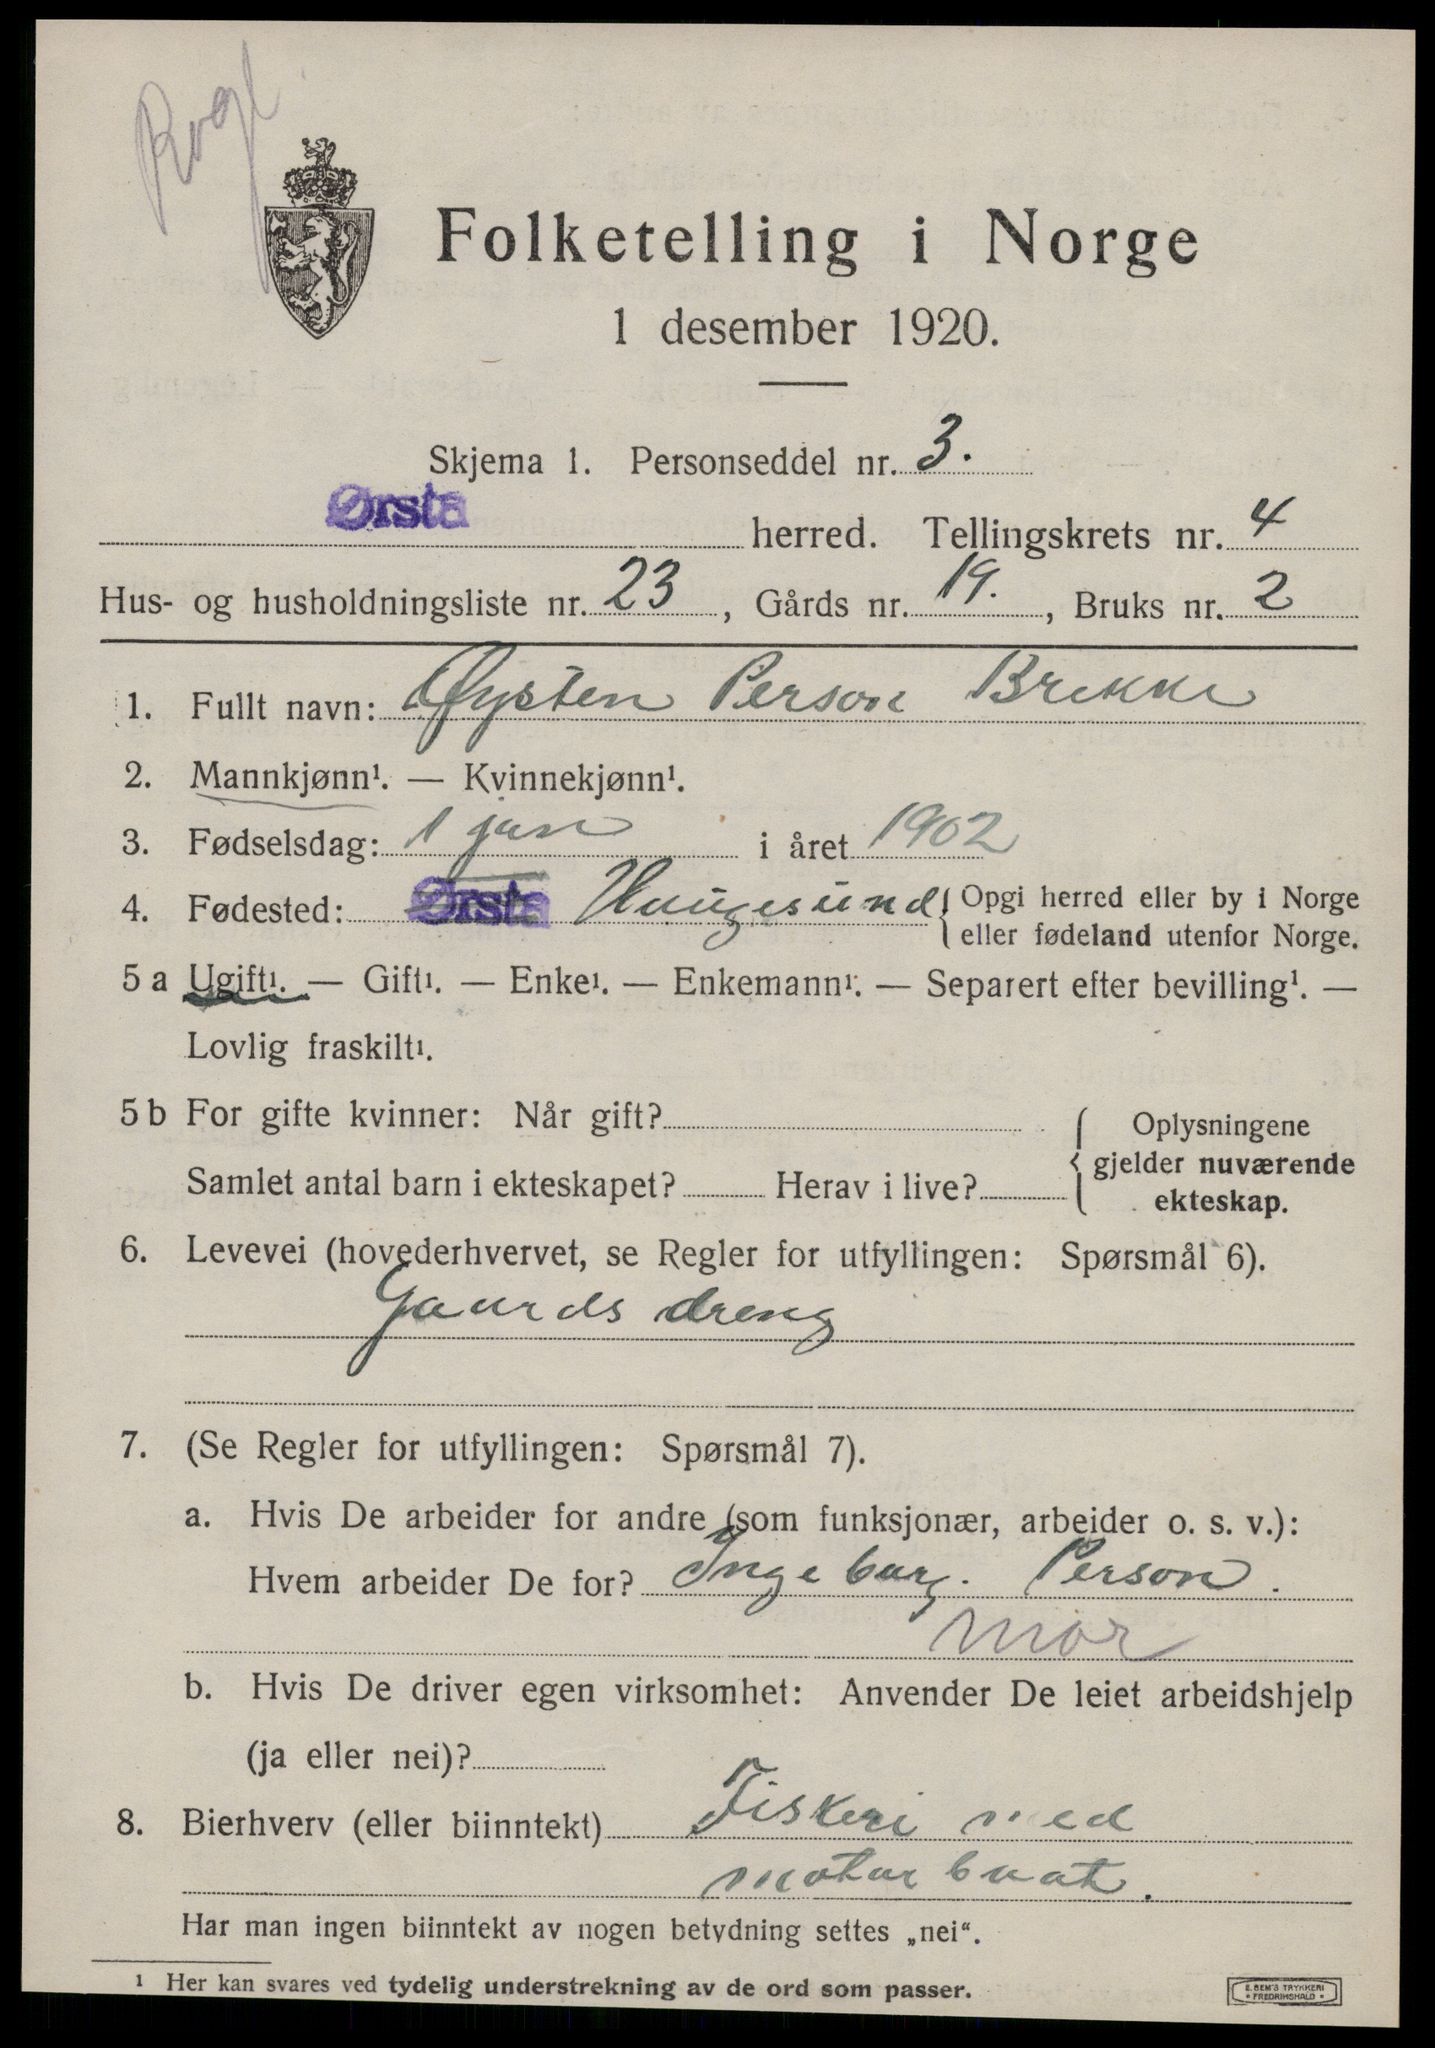 Rogl.
Folketelling i Norge
1 desember 1920.
Skjema 1. Personseddel nr. 3.
Ørsta herred. Tellingskrets nr. 4
Hus- og husholdningsliste nr. 23, Gårds nr. 19., Bruks nr. 2
1. Fullt navn: Øysten Person Brekke
2. Mannkjønn¹. — Kvinnekjønn¹.
3. Fødselsdag: 1 jan i året 1902
4. Fødested: Ørsta Haugesund { Opgi herred eller by i Norge
eller fødeland utenfor Norge.
5 a Ugift¹. — Gift¹. — Enke¹. — Enkemann¹. — Separert efter bevilling¹. —
Lovlig fraskilt¹.
5 b For gifte kvinner: Når gift? { Oplysningene
gjelder nuværende
Samlet antal barn i ekteskapet? Herav i live?
ekteskap.
6. Levevei (hovederhvervet, se Regler for utfyllingen: Spørsmål 6).
Gaards dreng
7. (Se Regler for utfyllingen: Spørsmål 7).
a. Hvis De arbeider for andre (som funksjonær, arbeider o. s. v.):
Hvem arbeider De for? Ingeborg. Person.
mor
b. Hvis De driver egen virksomhet: Anvender De leiet arbeidshjelp
(ja eller nei)?
8. Bierhverv (eller biinntekt) Fiskeri med
motor baat.
Har man ingen biinntekt av nogen betydning settes „nei“.
¹ Her kan svares ved tydelig understrekning av de ord som passer.
E. SEM'S TRYKKERI
FREDRIKSHALD